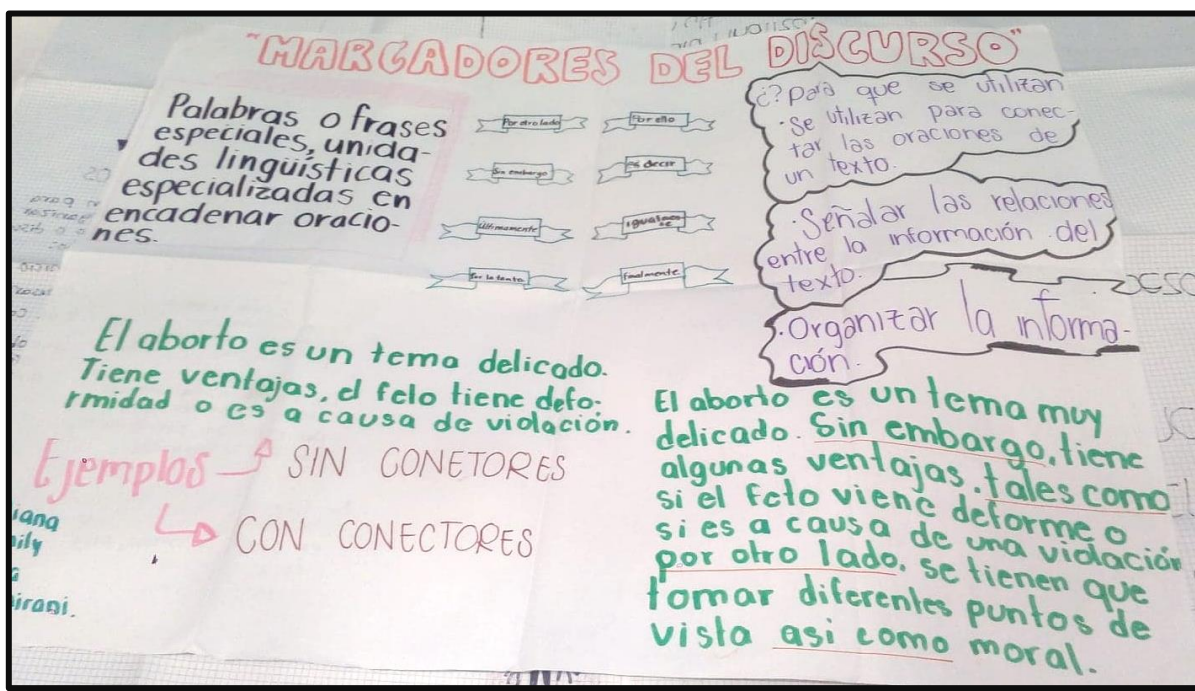 "MARCADORES DEL DISCURSO"
Palabras o frases
especiales, unida-
des lingüísticas
especializadas en
encadenar oracio-
nes.
Por otro lado
Por ello
Sin embargo
es decir
Últimamente
Por lo tanto
Finalmente
¿? Para que se utilizan
·Se utilizan para conec-
tar las oraciones de
un texto.
·Señalar las relaciones
entre la información del
texto.
·Organizar la informa-
ción.
El aborto es un tema delicado.
Tiene ventajas, el feto tiene defo-
rmidad o es a causa de violación.
Ejemplos
SIN CONETORES
CON CONECTORES
El aborto es un tema muy
delicado. Sin embargo, tiene
algunas ventajas, tales como
si el feto viene deforme o
si es a causa de una violación
por otro lado, se tienen que
tomar diferentes puntos de
vista asi como moral.